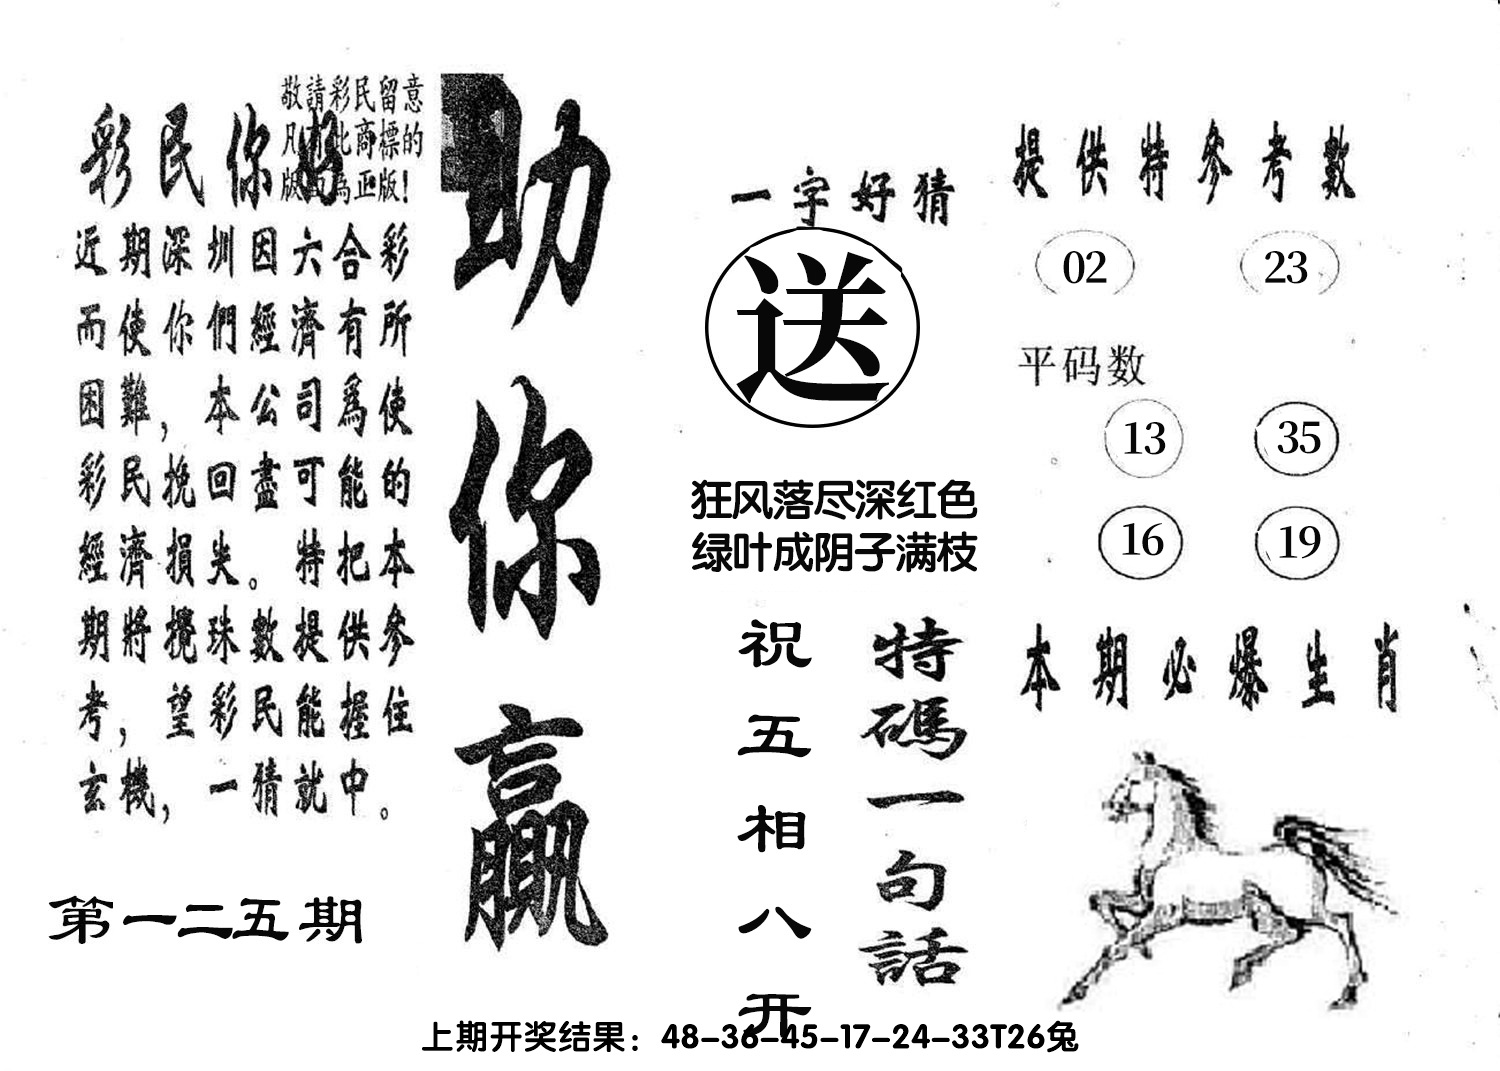 敬請彩民留意
凡有此商標的
版面為正版!
彩民你好
近期深圳因六合彩
而使你們經濟有所
困難，本公司爲使
彩民挽回盡可能的
經濟損失。特把本
期將攪珠數提供參
考，望彩民能握住
玄機，一猜就中。
第一二五期
助你贏
一字好猜
送
狂风落尽深红色
绿叶成阴子满枝
特碼一句話
祝五相八开
提供特參考數
02 23
平码数
13 35
16 19
本期必爆生肖
上期开奖结果：48-36-45-17-24-33T26兔